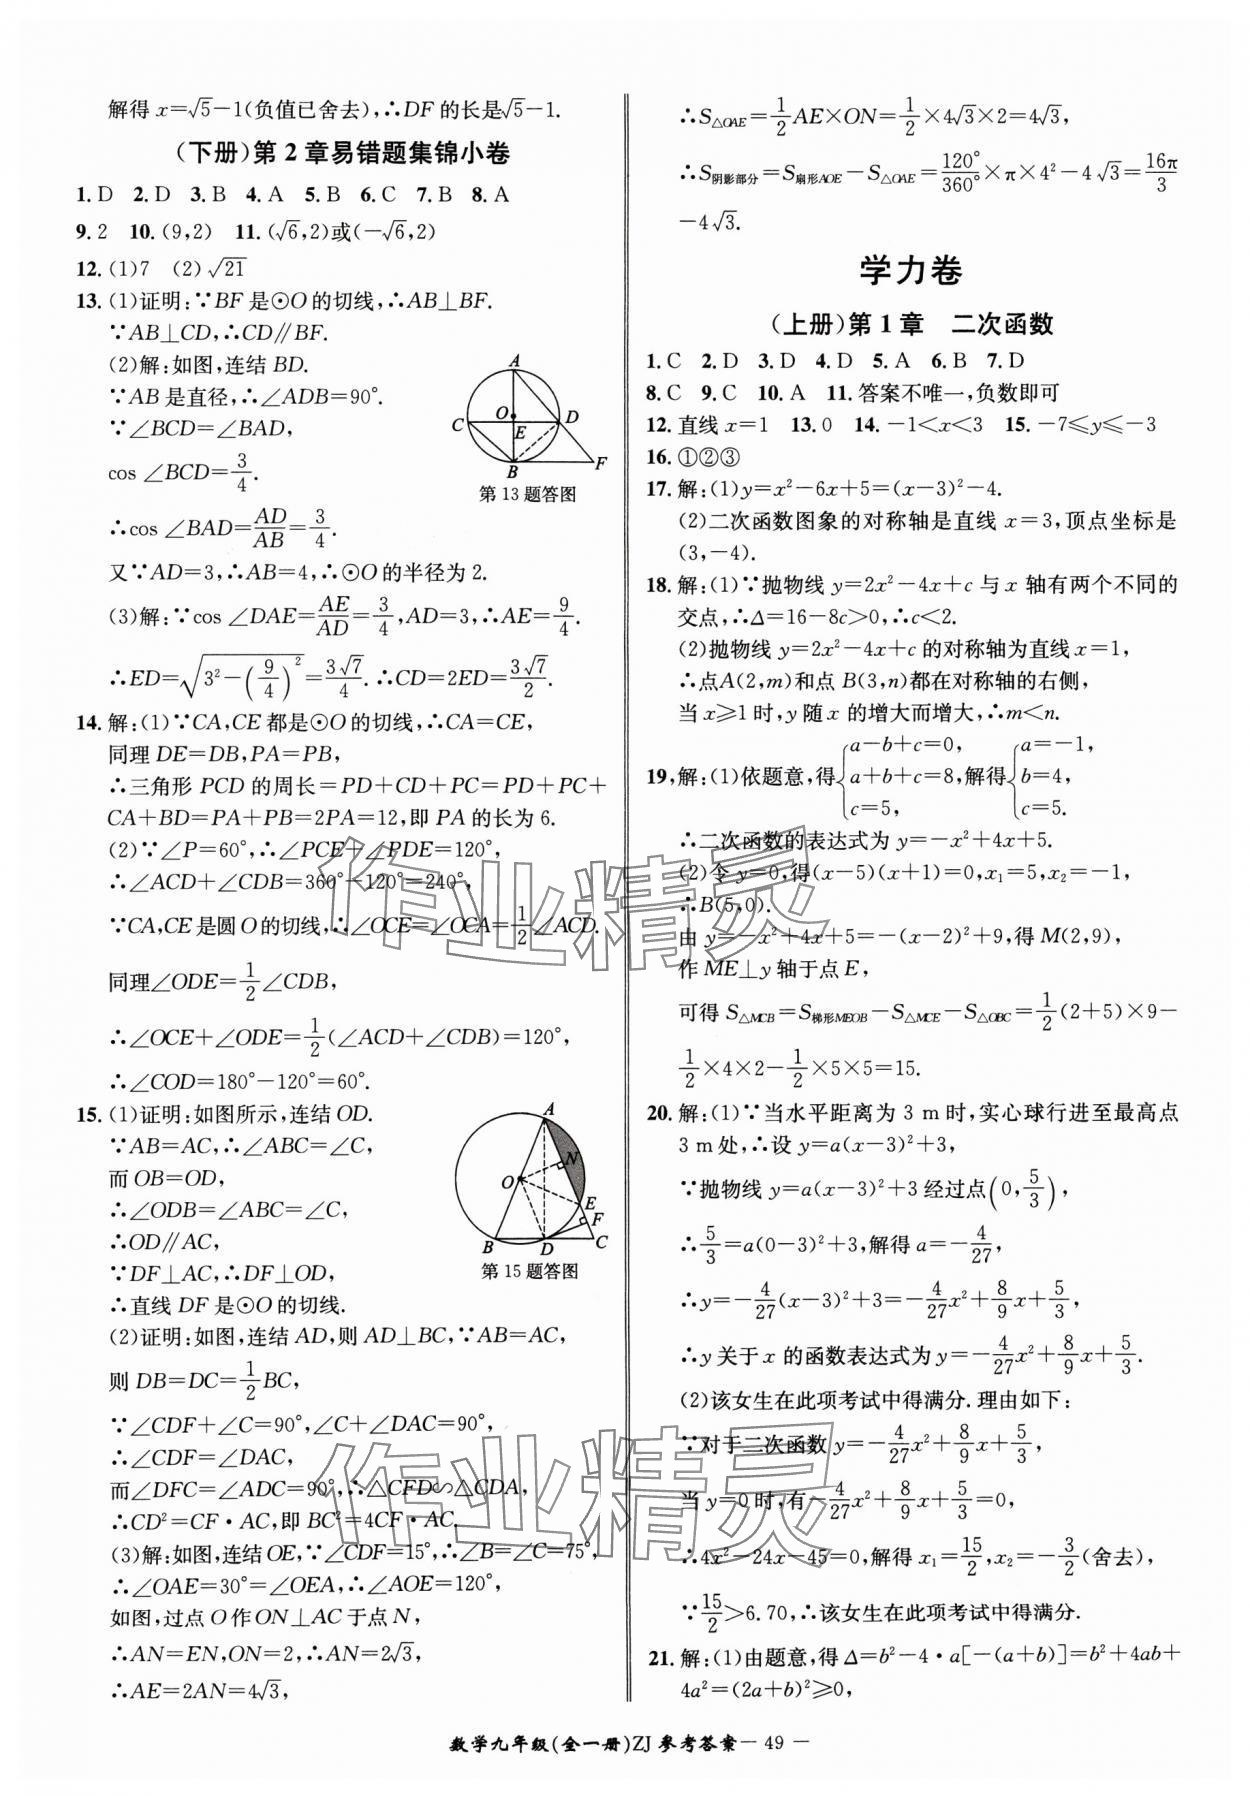 解得 x=√5-1(负值已舍去),∴DF 的长是√5-1.
(下册)第 2 章易错题集锦小卷
1. D 2. D 3. B 4. A 5. B 6. C 7. B 8. A
9. 2 10. (9,2) 11. (√6,2)或(-√6,2)
12. (1)7 (2)√21
13. (1)证明:∵BF 是⊙O 的切线,∴AB⊥BF.
∵AB⊥CD,∴CD∥BF.
(2)解:如图,连结 BD.
∵AB 是直径,∴∠ADB=90°.
∵∠BCD=∠BAD,
cos ∠BCD=3/4.
∴cos ∠BAD=AD/AB=3/4.
又∵AD=3,∴AB=4,∴⊙O 的半径为 2.
(3)解:∵cos ∠DAE=AE/AD=3/4,AD=3,∴AE=9/4.
∴ED=√(3²-(9/4)²)=3√7/4.∴CD=2ED=3√7/2.
A
C
O
D
E
B
F
第 13 题答图
14. 解:(1)∵CA,CE 都是⊙O 的切线,∴CA=CE,
同理 DE=DB,PA=PB,
∴三角形 PCD 的周长=PD+CD+PC=PD+PC+
CA+BD=PA+PB=2PA=12,即 PA 的长为 6.
(2)∵∠P=60°,∴∠PCE+∠PDE=120°,
∴∠ACD+∠CDB=360°-120°=240°,
∵CA,CE 是圆 O 的切线,∴∠OCE=∠OCA=1/2∠ACD.
同理∠ODE=1/2∠CDB,
∴∠OCE+∠ODE=1/2(∠ACD+∠CDB)=120°,
∴∠COD=180°-120°=60°.
15. (1)证明:如图所示,连结 OD.
∵AB=AC,∴∠ABC=∠C,
而 OB=OD,
∴∠ODB=∠ABC=∠C,
∴OD∥AC,
∵DF⊥AC,∴DF⊥OD,
∴直线 DF 是⊙O 的切线.
A
N
O
E
F
B
D
C
第 15 题答图
(2)证明:如图,连结 AD,则 AD⊥BC,∵AB=AC,
则 DB=DC=1/2BC,
∵∠CDF+∠C=90°,∠C+∠DAC=90°,
∴∠CDF=∠DAC,
而∠DFC=∠ADC=90°,∴△CFD∽△CDA,
∴CD²=CF·AC,即 BC²=4CF·AC.
(3)解:如图,连结 OE,∵∠CDF=15°,∴∠B=∠C=75°,
∴∠OAE=30°=∠OEA,∴∠AOE=120°,
如图,过点 O 作 ON⊥AC 于点 N,
∴AN=EN,ON=2,∴AN=2√3,
∴AE=2AN=4√3,
∴S△OAE=1/2AE×ON=1/2×4√3×2=4√3,
∴S阴影部分=S扇形AOE-S△OAE=120°/360°×π×4²-4√3=16π/3
-4√3.
学力卷
(上册)第 1 章 二次函数
1. C 2. D 3. D 4. D 5. A 6. B 7. D
8. C 9. C 10. A 11. 答案不唯一,负数即可
12. 直线 x=1 13. 0 14. -1<x<3 15. -7≤y≤-3
16. ①②③
17. 解:(1)y=x²-6x+5=(x-3)²-4.
(2)二次函数图象的对称轴是直线 x=3,顶点坐标是
(3,-4).
18. 解:(1)∵抛物线 y=2x²-4x+c 与 x 轴有两个不同的
交点,∴Δ=16-8c>0,∴c<2.
(2)抛物线 y=2x²-4x+c 的对称轴为直线 x=1,
∴点A(2,m)和点 B(3,n)都在对称轴的右侧,
当 x≥1 时,y 随 x 的增大而增大,∴m<n.
19. 解:(1)依题意,得{a-b+c=0, a+b+c=8, c=5,解得{a=-1, b=4, c=5.
∴二次函数的表达式为 y=-x²+4x+5.
(2)令 y=0,得(x-5)(x+1)=0,x₁=5,x₂=-1,
∴B(5,0).
由 y=-x²+4x+5=-(x-2)²+9,得 M(2,9),
作 ME⊥y 轴于点 E,
可得 S△MCB=S梯形MEOB-S△MCE-S△OBC=1/2(2+5)×9-
1/2×4×2-1/2×5×5=15.
20. 解:(1)∵当水平距离为 3 m 时,实心球行进至最高点
3 m 处,∴设 y=a(x-3)²+3,
∵抛物线 y=a(x-3)²+3 经过点(0,5/3),
∴5/3=a(0-3)²+3,解得 a=-4/27,
∴y=-4/27(x-3)²+3=-4/27x²+8/9x+5/3,
∴y 关于 x 的函数表达式为 y=-4/27x²+8/9x+5/3.
(2)该女生在此项考试中得满分.理由如下:
∵对于二次函数 y=-4/27x²+8/9x+5/3,
当 y=0 时,有-4/27x²+8/9x+5/3=0,
∴4x²-24x-45=0,解得 x₁=15/2,x₂=-3/2(舍去),
∵15/2>6.70,∴该女生在此项考试中得满分.
21. 解:(1)由题意,得 Δ=b²-4·a[-(a+b)]=b²+4ab+
4a²=(2a+b)²≥0,
作业精灵
作业精灵
数学九年级(全一册)ZJ 参考答案— 49 —